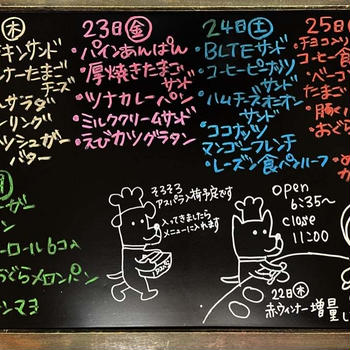 木
チキンサンド
ンナーたまご
チーズ
ルサラダ
ーリング
ッシュガー
バター
23日 金
・パインあんぱん
・厚焼きたまご
サンド
・ツナカレーパン
・ミルククリームサンド
・えびカツグラタン
24日 土
・BLTEサンド
・コーヒーピーナッツ
サンド
・ハムチーズオニオン
サンド
・ココナッツ
マンゴーフレンチ
・レーズン食パンハーフ
25日
・チョコ
コーヒー食
・ベーコ
たまご
・豚く
・おぐら
月
ーガー
ン
ーロール6コ入
ぐらメロンパン
ンマヨ
そろそろ
アスパラ入荷予定です
入ってきましたら
メニューに入れます
open
6:35～
close
11:00
22日 木
赤ウィンナー増量し